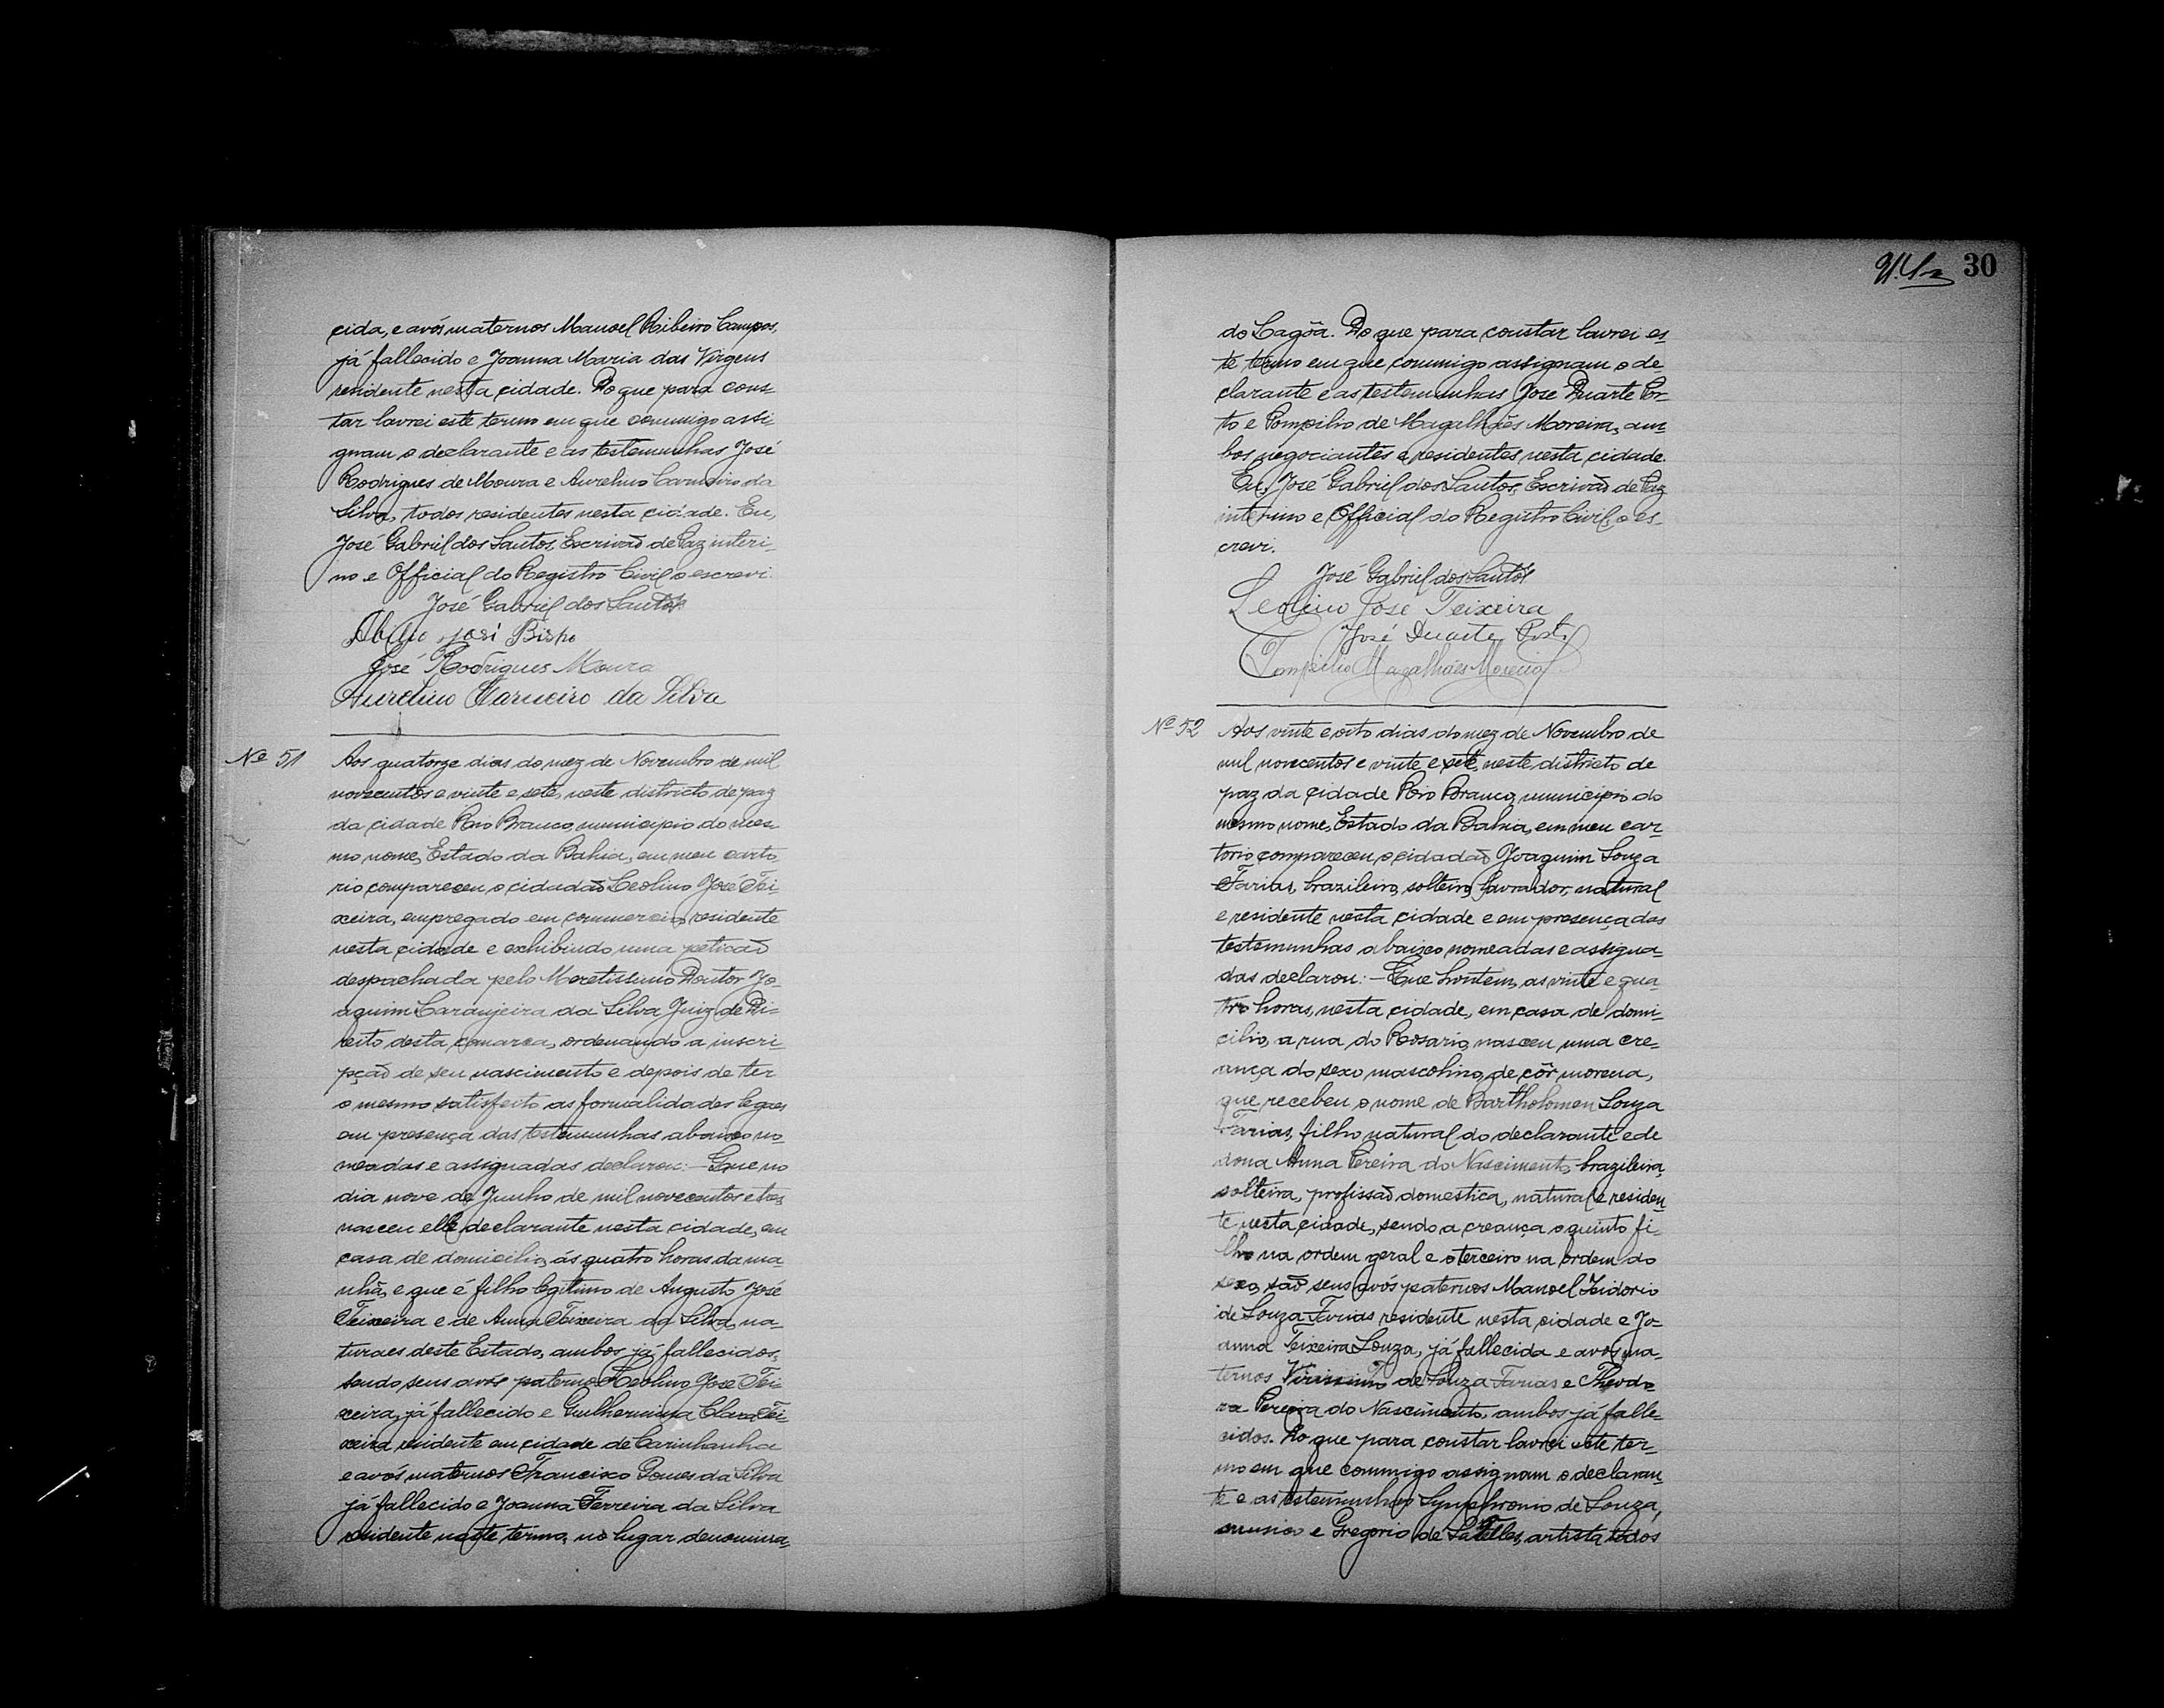 cida, e avós maternos Manoel Ribeiro Campos,
já fallecido e Joanna Maria das Virgens
residente nesta cidade. Do que para cons-
tar lavrei este termo em que commigo assi-
gnam o declarante e as testemunhas José
Rodrigues de Moura e Aurelino Carneiro da
Silva, todos residentes nesta cidade. Eu,
José Gabriel dos Santos, Escrivaõ de Paz interi-
no e Official do Registro Civil o escrevi.
José Gabriel dos Santos
Abilio José Bispo
José Rodrigues Moura
Aurelino Carneiro da Silva
Nº 51
Aos quatorze dias do mez de Novembro de mil
novecentos e vinte e sete, neste districto de paz
da cidade Rio Branco, municipio do mes-
mo nome, Estado da Bahia, em meu carto-
rio compareceu o cidadaõ Leolino José Tei-
xeira, empregado em commercio, residente
nesta cidade e exhibindo uma petiçaõ
despachada pelo Meretissimo Doutor Jo-
aquim Laranjeira da Silva Juiz de Di-
reito desta comarca, ordenando a inscri-
pçaõ de seu nascimento e depois de ter
o mesmo satisfeito as formalidades legaes
em presença das testemunhas abaixo no-
meadas e assignadas declarou: - Que no
dia nove de Junho de mil novecentos e tres,
nasceu elle declarante nesta cidade, em
casa de domicilio, ás quatro horas da ma-
nhã, e que é filho legitimo de Augusto José
Teixeira e de Anna Teixeira da Silva, na-
turaes deste Estado, ambos já fallecidos,
sendo seus avós paternos Leolino José Tei-
xeira, já fallecido e Guilhermina Clara Tei-
xeira residente em cidade de Carinhanha
e avós maternos Francisco Gomes da Silva
já fallecido e Joanna Ferreira da Silva
residente neste termo, no lugar denomina-
30
do Lagôa. Do que para constar lavrei es-
te termo em que commigo assignam o de-
clarante e as testemunhas José Duarte Por-
to e Pompilio de Magalhães Moreira, am-
bos negociantes e residentes nesta cidade.
Eu, José Gabriel dos Santos, Escrivaõ de Paz
interino e Official do Registro Civil, o es-
crevi.
José Gabriel dos Santos
Leolino José Teixeira
José Duarte Porto
Pompilio Magalhães Moreira
Nº 52
Aos vinte e oito dias do mez de Novembro de
mil novecentos e vinte e sete, neste districto de
paz da cidade Rio Branco, municipio do
mesmo nome, Estado da Bahia, em meu car-
torio compareceu o cidadaõ Joaquim Souza
Farias, brazileiro, solteiro, lavrador, natural
e residente nesta cidade e em presença das
testemunhas abaixo nomeadas e assigna-
das declarou: - Que hontem, as vinte e qua-
tro horas, nesta cidade, em casa de domi-
cilio, a rua do Rosario, nasceu uma cre-
ança do sexo mascolino, de côr morena,
que recebeu o nome de Bartholomeu Souza
Farias, filho natural do declarante e de
dona Anna Pereira do Nascimento, brazileira,
solteira, profissaõ domestica, natural e residen-
te nesta cidade, sendo a creança o quinto fi-
lho na ordem geral e o terceiro na ordem do
sexo, saõ seus avós paternos Manoel Izidorio
de Souza Farias residente nesta cidade e Jo-
anna Teixeira Souza, já fallecida e avós ma-
ternos Virissimo de Souza Farias e Theodo-
ra Pereira do Nascimento, ambos já falle-
cidos. Do que para constar lavrei este ter-
mo em que commigo assignam o declaran-
te e as testemunhas Synphronio de Souza,
e Gregorio de Sá Telles, artista, todos